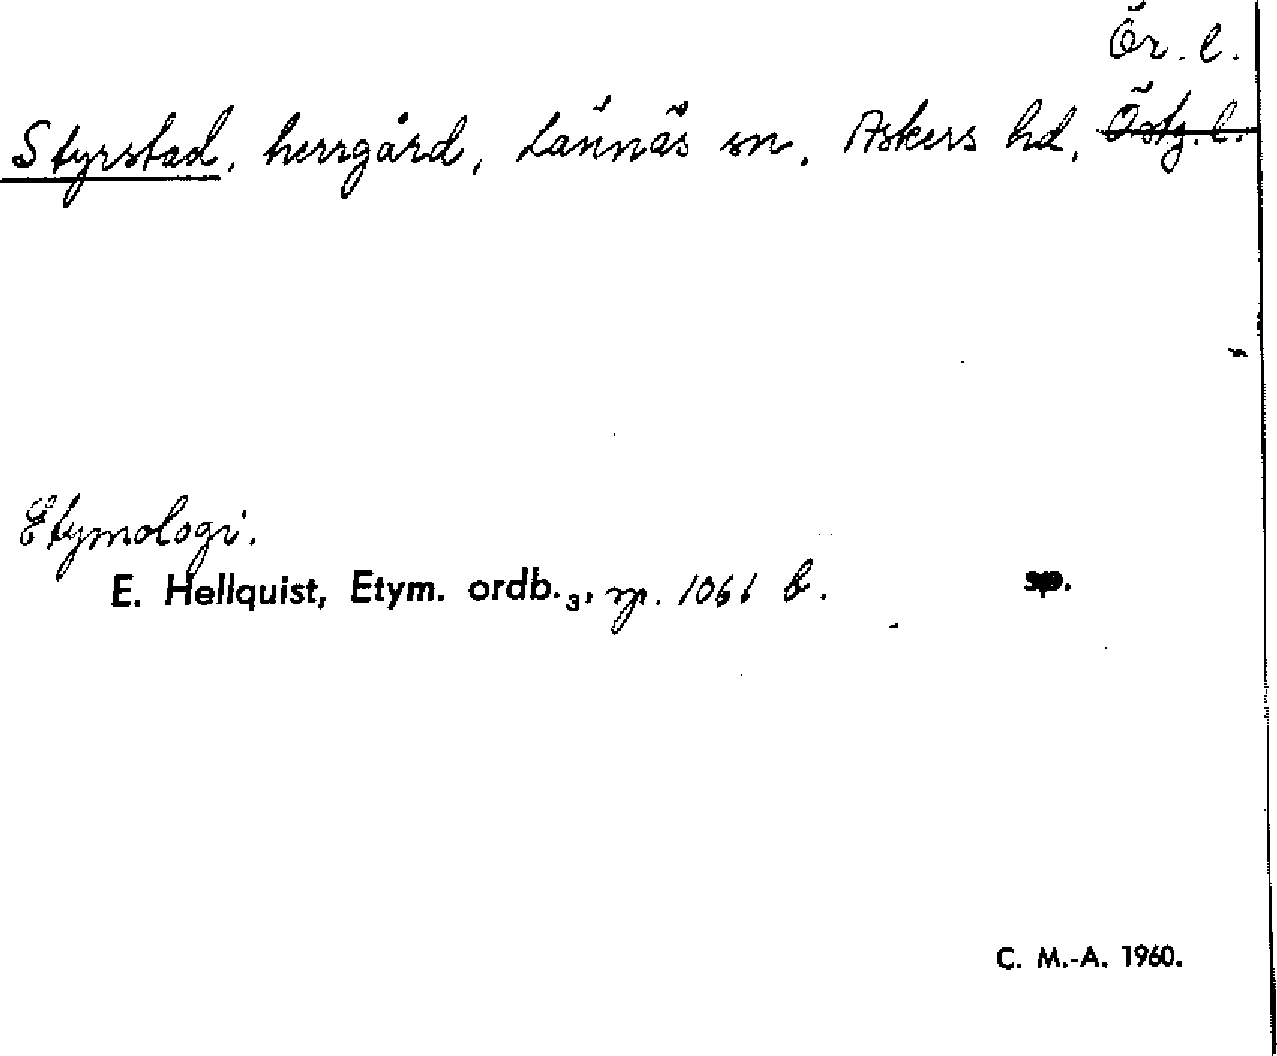 Ör. l.
Styrstad, herrgård, Lännäs sn, Askers hd, Östg. l.
Etymologi.
E. Hellquist, Etym. ordb. 3, sp. 1061 b. sp.
C. M.-A. 1960.